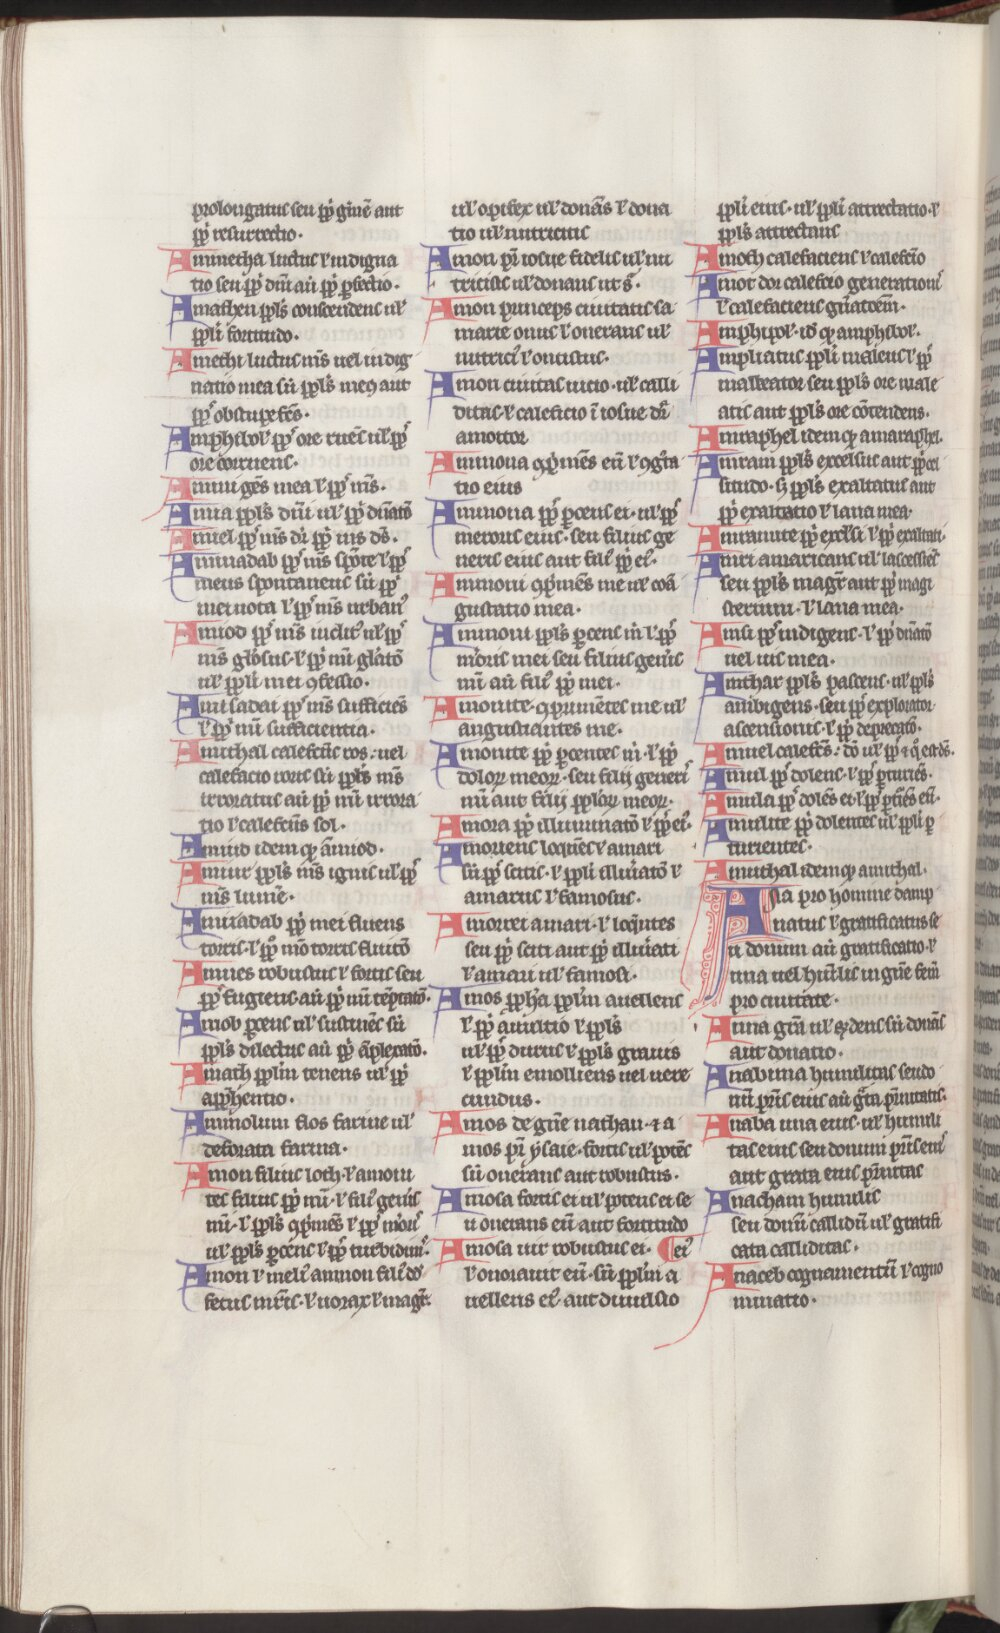 prolongatus seu pp̄ gn̄is aut
pp̄ resurrectio.
Aminetha luctus ł indigna
tio seu pp̄ dn̄i aū pp̄ ꝑfectio.
Amathen ppl̄s conscendens ul̄
ppl̄i fortitudo.
Amechi luctus m̄s uel indig
natio mea siī ppl̄s meꝰ aut
pp̄s obstupefc̄s.
Amphibol̄ pp̄s ore ruēs ul̄ pp̄s
ore corruens.
Ammi gēs mea ł pp̄s m̄s.
Amia ppl̄s dn̄i ul̄ pp̄ dn̄atō
Amiel pp̄s m̄s dī pp̄ m̄s ds̄.
Aminadab pp̄s m̄s spōte ł pp̄s
meus spontaneus siī pp̄s
mei uota ł pp̄s m̄s urbanꝰ
Amiod pp̄s m̄s inclitꝰ ul̄ pp̄s
m̄s gl̄osus. ł pp̄ mī gl̄atō
ul̄ ppl̄i mei ꝯfessio.
Amisadai pp̄s m̄s sufficiēs
ł pp̄ mī sufficientia.
Amithal calefc̄is ros. uel
calefacio roris siī ppl̄s m̄s
irroratus aū pp̄ mī irrora
tio ł calefc̄ns sol.
Amiud idem qꝫ amiod.
Amiur ppl̄s m̄s ignis ul̄ pp̄s
m̄s lumē.
Amiradab pp̄ mei fluens
torris. ł pp̄ mō torris fluitō
Amies robustus ł fortis seu
pp̄s fugiens aū pp̄ mī tēptatō.
Amob ꝑcens ul̄ sustinēs siī
ppl̄s dilectus aū pp̄ āplexatō.
Amach ppl̄m tenens ul̄ pp̄
app̄hensio.
Aminolum flos farine ul̄
deforata farina.
Amon filius loth. ł amoni
tes filius pp̄ mī. ł filꝰ genis
mī. ł ppl̄s ꝯp̄mēs ł pp̄s morꝰ
ul̄ ppl̄s ꝑcens ł pp̄ turbidinꝰ.
Amon ł meliꝰ ammon filꝰ do
fectus mēs. ł uorax ł magr̄.
ul̄ opifex ul̄ donās ł dona
tio ul̄ nutricius
Amon pī iosue fidelis ul̄ nu
tricius ul̄ donans ut s̄.
Amon princeps ciuitatis sa
marie onus ł onerans ul̄
nutricꝰ ł onustus.
Amon ciuitas uicio. ul̄ calli
ditas. ł calefcio ī iosue dr̄
amottor
Aminona ꝯp̄mēs eū ł ꝯgrā
tio eius
Aminona pp̄ ꝑcens ei. ul̄ pp̄s
meroris eiꝰ. seu filius ge
neris eius aut filꝰ pp̄ eiꝰ.
Aminoni ꝯp̄mēs me ul̄ cōā
gustatio mea.
Aminoni ppl̄s ꝑcens m̄ ł pp̄s
meoris mei seu filius genis
mī aū filꝰ pp̄ mei.
Amonite. ꝯprimētes me ul̄
angustiantes me.
Amonite pp̄i ꝑcentes m̄. ł pp̄
doloꝝ meoꝝ. seu filii generꝰ
mī aut filii ppl̄oꝝ meoꝝ.
Amora pp̄ illuminatō ł pp̄ eiꝰ.
Amoreus loquēs ł amari
siī pp̄s setis. ł ppl̄i illuīatō ł
amarus ł famosus.
Amorrei amari. ł loqūtes
seu pp̄ seti aut pp̄ illuīati
ł amari ul̄ famosi.
Amos pph̄a ppl̄m auellens
ł pp̄ auultio ł ppl̄s
ul̄ pp̄s durus ł ppl̄s grauis
ł ppl̄m emolliens uel uere
cundus.
Amos de gn̄e nathan. ⁊ a
mos pī ysaie. fortis ul̄ potēs
siī onerans aut robustus.
Amosa fortis ei ul̄ potens ei se
u onerans eū aut fortitudo
Amosa uir robustus ei. eiꝰ
ł onorauit eū. siī ppl̄m a
uellens eiꝰ. aut diuulsio
ppl̄i eius. ul̄ ppl̄i attrectatio. ł
ppl̄s attrectans
Amoth calefaciens ł calefcio
Amot dor calefcio generationiꝰ
ł calefaciens gn̄atōem.
Amphipol̄. id̄ qꝫ amphibol̄.
Ampliatus ppl̄i maleus ł pp̄s
malleator seu ppl̄s ore male
atis aut ppl̄s ore cōtendens.
Amraphel idem qꝫ amaraphel.
Amram ppl̄s excelsus aut pp̄ cel
situdo. siī ppl̄s exaltatus aut
pp̄ exaltatio ł lana mea.
Amramite pp̄i excelsi ł pp̄ exaltati.
Amri amaricans ul̄ lacessens
seu ppl̄s magr̄ aut pp̄ magi
sterium. ł lana mea.
Amsi pp̄s indigens. ł pp̄ dn̄atō
uel uis mea.
Amthar ppl̄s pascens. ul̄ ppl̄s
ambigens. seu pp̄ explorator
ascensionis. ł pp̄ deprecatō.
Amuel calefc̄s dō ul̄ pp̄s ⁊ q̄ est ds̄.
Amul pp̄s dolens. ł pp̄s ꝑturiēs.
Amula pp̄s dolēs ei ł pp̄s ꝑtiēs eū.
Amulite pp̄ dolentes ul̄ ppl̄i ꝑ
turientes.
Amuthal idem qꝫ amithal.
Ana pro homine damp
natus ł gratificatus se
u donum aū gratificatio. ł
una uel humilis in gn̄e fem̄
pro ciuitate.
Anna gr̄a ul̄ respōdens siī donās
aut donatio.
Anabima humilitas seudo
num pr̄is eius aū gr̄a pr̄nitatis.
Anaba una eius. ul̄ humili
tas eius seu donum pr̄is eius
aut grata eius pr̄nitas
Anacham humilis
seu donū callidū ul̄ gratifi
cata calliditas.
Anaceb cognamentū ł cogno
minatio.